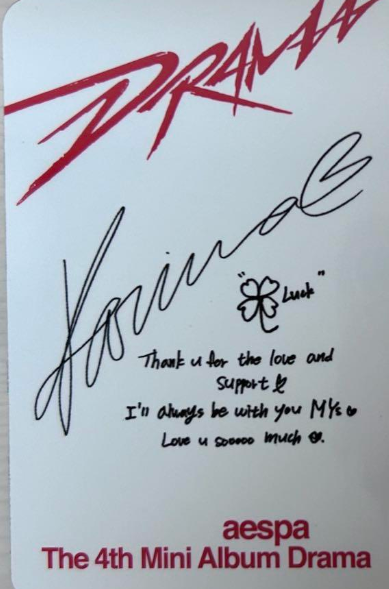 DRAMA
Karina
"🍀 Luck"
Thank u for the love and
Support
I'll always be with you MYs
Love u sooooo much
aespa
The 4th Mini Album Drama